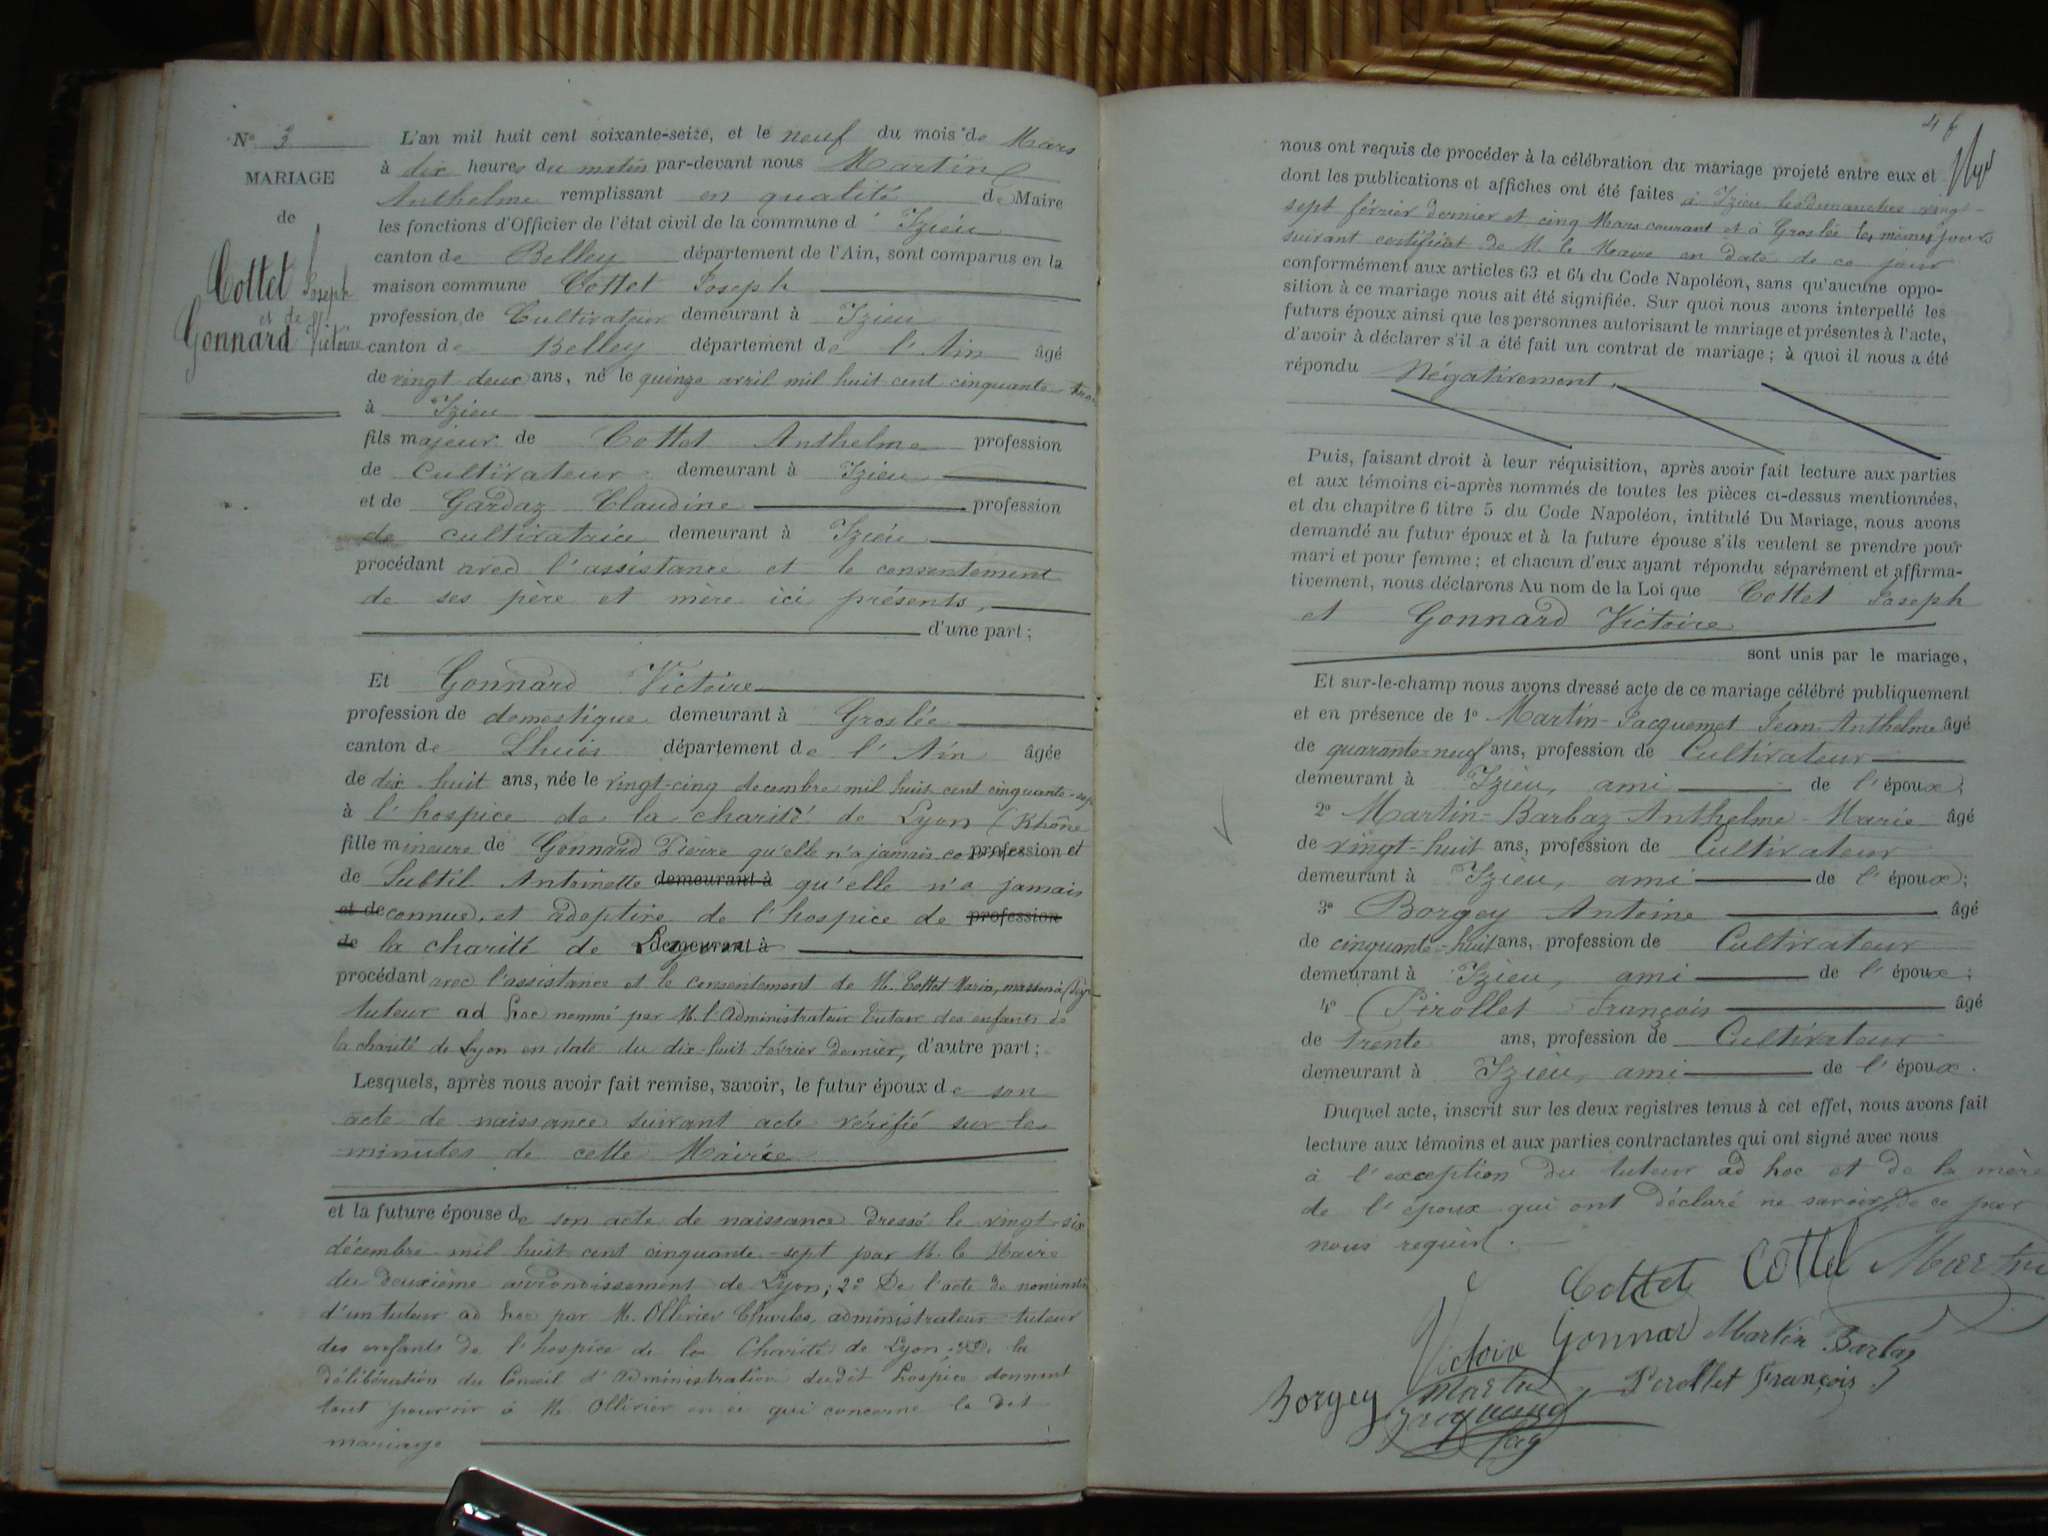 N° 3
MARIAGE
de
Cottet Joseph
et de
Gonnard Victoire
L'an mil huit cent soixante-seize, et le neuf du mois de Mars
à dix heures du matin par-devant nous Martin
Anthelme remplissant en qualité de Maire
les fonctions d'Officier de l'état civil de la commune d' Izieu
canton de Belley département de l'Ain, sont comparus en la
maison commune Cottet Joseph
profession de Cultivateur demeurant à Izieu
canton de Belley département de l'Ain âgé
de vingt deux ans, né le quinze avril mil huit cent cinquante trois
à Izieu
fils majeur de Cottet Anthelme profession
de cultivateur demeurant à Izieu
et de Gardaz Claudine profession
de cultivatrice demeurant à Izieu
procédant avec l'assistance et le consentement
de ses père et mère ici présents,
d'une part;
Et Gonnard Victoire
profession de domestique demeurant à Groslée
canton de Lhuis département de l'Ain âgée
de dix huit ans, née le vingt-cinq décembre mil huit cent cinquante-sept
à l'hospice de la charité de Lyon (Rhône
fille mineure de Gonnard Pierre qu'elle n'a jamais connu profession et
de Subtil Antoinette demeurant à qu'elle n'a jamais
et de connue, et adoptive de l'hospice de profession
de la charité de Lyon demeurant à
procédant avec l'assistance et le consentement de M. Cottet Marin, maçon à
tuteur ad hoc nommé par M. l'Administrateur Tuteur des enfants de
la charité de Lyon en date du dix-huit février dernier, d'autre part;
Lesquels, après nous avoir fait remise, savoir, le futur époux de son
acte de naissance suivant acte vérifié sur les
minutes de cette Mairie
et la future épouse de son acte de naissance dressé le vingt-six
décembre mil huit cent cinquante-sept par M. le Maire
du deuxième arrondissement de Lyon; 2° De l'acte de nomination
d'un tuteur ad hoc par M. Ollivier Charles, administrateur tuteur
des enfants de l'hospice de la Charité de Lyon; 3° De la
délibération du Conseil d'Administration dudit hospice donnant
tout pouvoir à M. Ollivier en ce qui concerne le dit
mariage
46
nous ont requis de procéder à la célébration du mariage projeté entre eux et
dont les publications et affiches ont été faites à Izieu les dimanches vingt-
sept février dernier et cinq Mars courant et à Groslée les mêmes jours
suivant certificat de M. le Maire en date de ce jour
conformément aux articles 63 et 64 du Code Napoléon, sans qu'aucune oppo-
sition à ce mariage nous ait été signifiée. Sur quoi nous avons interpellé les
futurs époux ainsi que les personnes autorisant le mariage et présentes à l'acte,
d'avoir à déclarer s'il a été fait un contrat de mariage; à quoi il nous a été
répondu Négativement.
Puis, faisant droit à leur réquisition, après avoir fait lecture aux parties
et aux témoins ci-après nommés de toutes les pièces ci-dessus mentionnées,
et du chapitre 6 titre 5 du Code Napoléon, intitulé Du Mariage, nous avons
demandé au futur époux et à la future épouse s'ils veulent se prendre pour
mari et pour femme; et chacun d'eux ayant répondu séparément et affirma-
tivement, nous déclarons Au nom de la Loi que Cottet Joseph
et Gonnard Victoire
sont unis par le mariage,
Et sur-le-champ nous avons dressé acte de ce mariage célébré publiquement
et en présence de 1° Martin-Jacquemet Jean-Anthelme âgé
de quarante-neuf ans, profession de Cultivateur
demeurant à Izieu, ami de l'époux;
2° Martin-Barbaz Anthelme-Marie âgé
de vingt-huit ans, profession de Cultivateur
demeurant à Izieu, ami de l'époux;
3° Borgey Antoine âgé
de cinquante-huit ans, profession de Cultivateur
demeurant à Izieu, ami de l'époux;
4° Pirollet François âgé
de trente ans, profession de Cultivateur
demeurant à Izieu, ami de l'époux.
Duquel acte, inscrit sur les deux registres tenus à cet effet, nous avons fait
lecture aux témoins et aux parties contractantes qui ont signé avec nous
à l'exception du tuteur ad hoc et de la mère
de l'époux qui ont déclaré ne savoir, de ce par
nous requis.
Cottet Cottet Martin
Victoire Gonnard Martin Barbaz
Borgey Martin Pirollet François